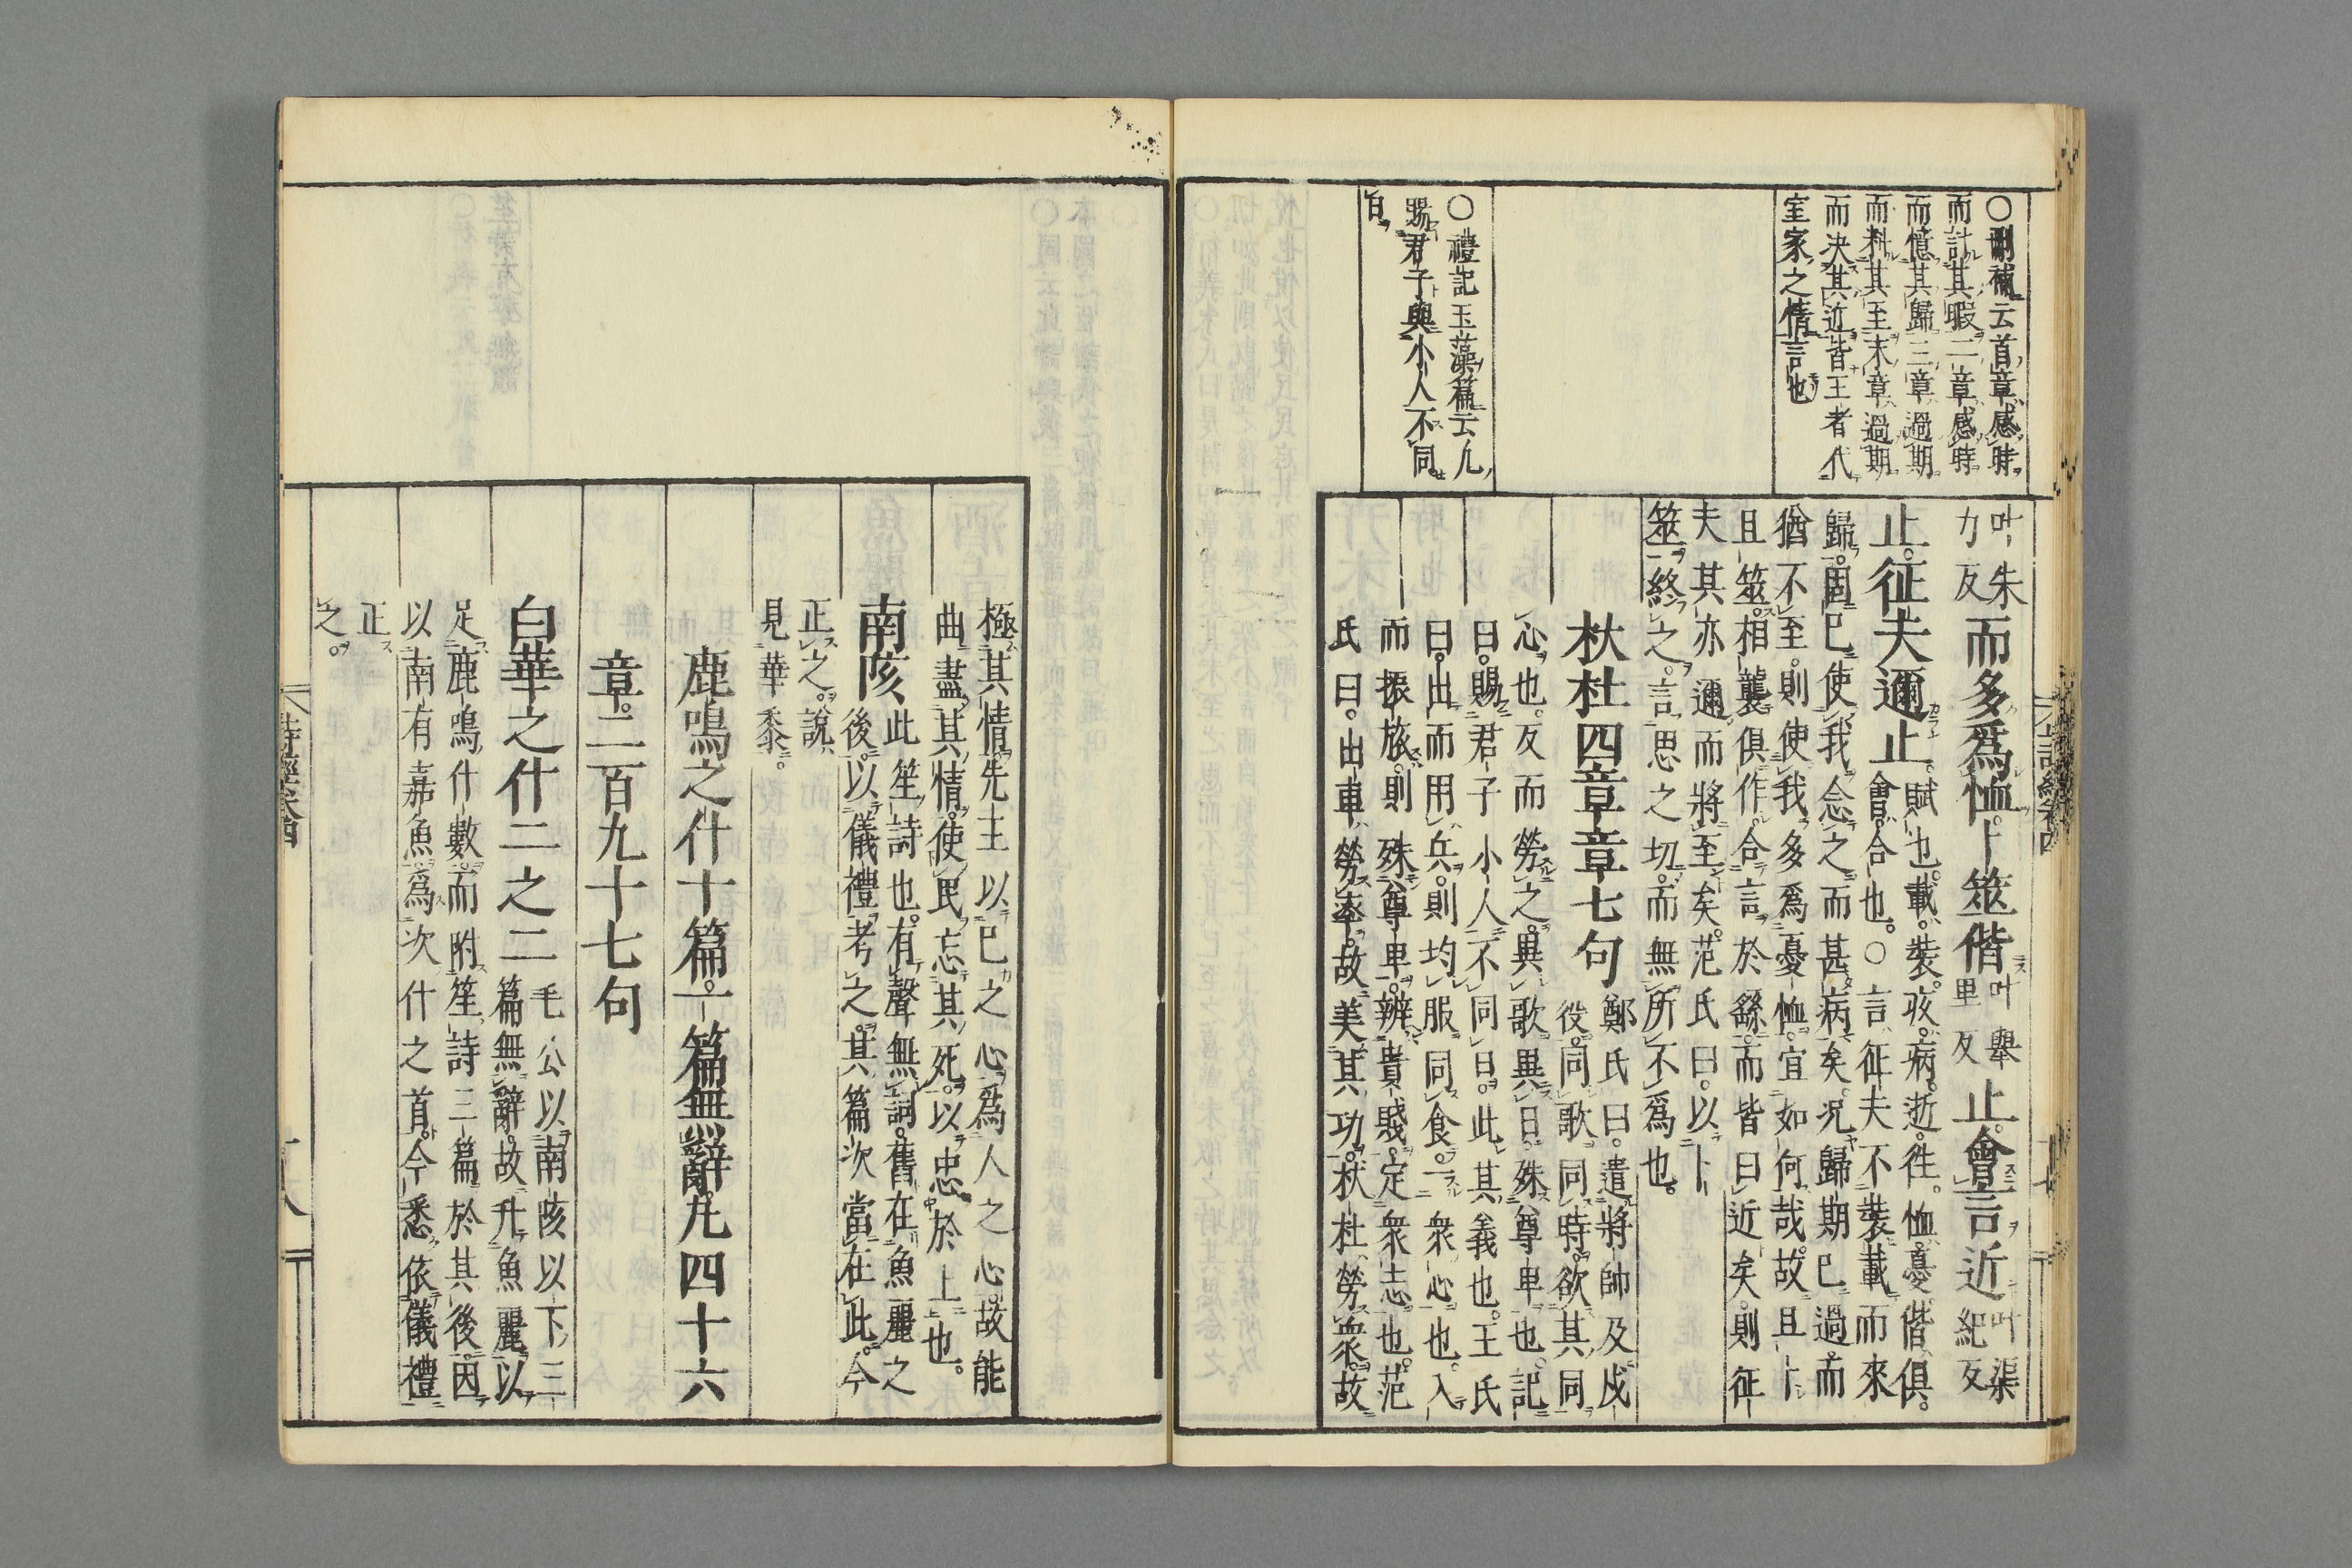 ○刪補云首章感時
而計其暇二章感時
而憶其歸三章過期
而料其至末章過期
而决其近皆王者代
室家之情言也
○禮記玉藻篇云凡
賜君子與小人不同
日
叶朱
力反
而多爲恤卜筮偕
叶舉
里反
止會言近
叶渠
紀反
止征夫邇止
賦也載裝疚病逝徃恤憂偕俱
會合也○言征夫不裝載而來
歸固已使我念之而甚病矣况歸期已過而
猶不至則使我多爲憂恤宜如何哉故且卜
且筮相襲俱作合言於繇而皆曰近矣則征
夫其亦邇而將至矣范氏曰以卜
筮終之言思之切而無所不爲也
杕杜四章章七句
鄭氏曰遣將帥及戍
役同歌同時欲其同
心也反而勞之異歌異日殊尊卑也記
曰賜君子小人不同日此其義也王氏
曰出而用兵則均服同食一衆心也入
而振旅則殊尊卑辨貴賤定衆志也范
氏曰出車勞率故美其功杕杜勞衆故
極其情先王以已之心爲人之心故能
曲盡其情使民忘其死以忠於上也
南陔
此笙詩也有聲無詞舊在魚麗之
後以儀禮考之其篇次當在此今
正之說
見華黍
鹿鳴之什十篇一篇無辭凡四十六
章二百九十七句
白華之什二之二
毛公以南陔以下三
篇無辭故升魚麗以
足鹿鳴什數而附笙詩三篇於其後因
以南有嘉魚爲次什之首今悉依儀禮
正
之